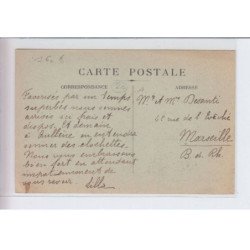 CARTE POSTALE
CORRESPONDANCE
ADRESSE
Favorisés par un temps
superbe nous sommes
arrivés au frais et
dispos. Et demain
à Guillerm on entendra
sonner des clochettes.
Nous vous embrassons
bien fort en attendant
impatiemment de
vous revoir
Mr & Mme Desanti
45 rue de la
Marseille
B. d. Rh.